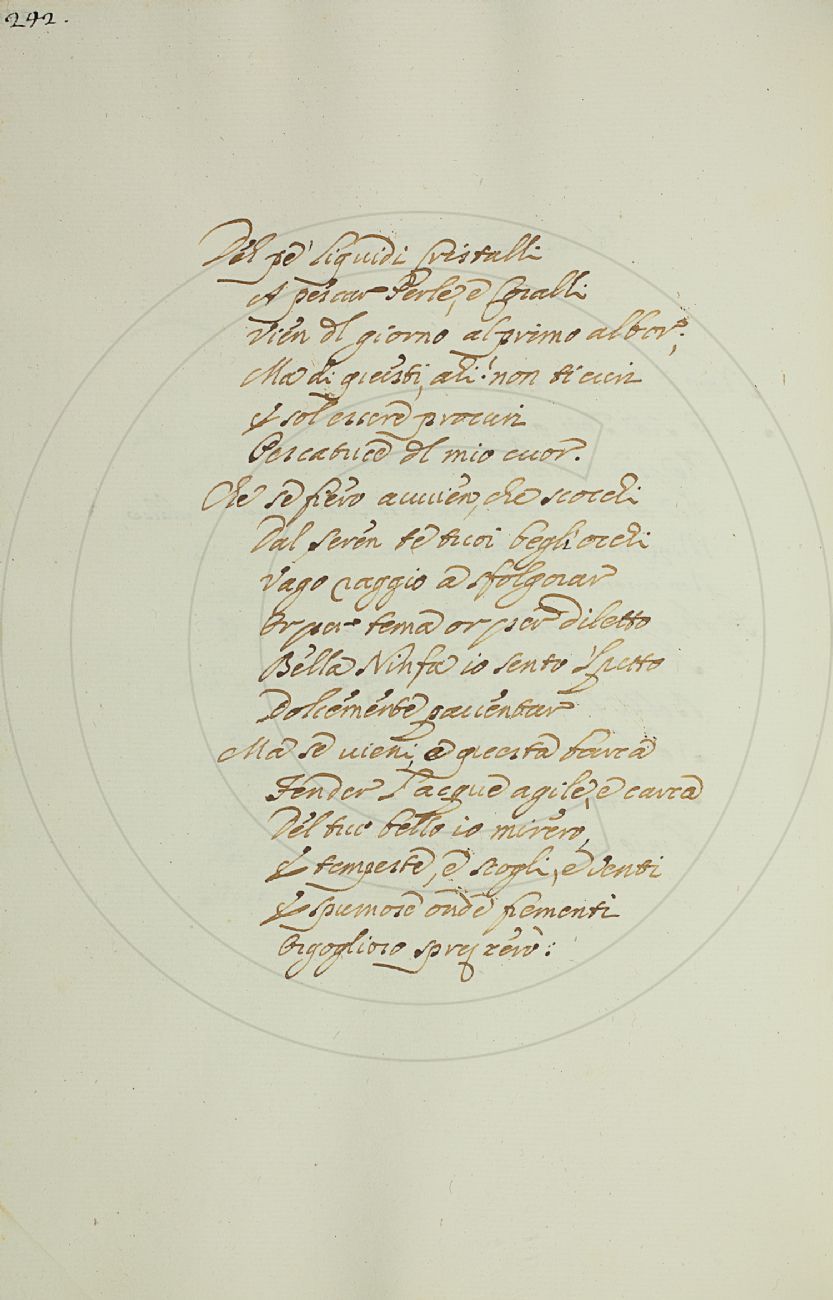 242.
Deh pe' liquidi Cristalli
A pescar Perle, e Coralli
Vien dl giorno al primo albor;
Ma di questi, ah! non ti curi
E sol essere procuri
Pescatrice dl mio cuor.
Che se fiero avvien, che scocchi
Dal seren te tuoi begl'occhi
Vago raggio a sfolgorar
Or per tema or per diletto
Bella Ninfa io sento 'l petto
Dolcemente paventar
Ma se vieni, e questa barca
Fender l'acque agile, e carca
Del tuo bello io mirerò,
E tempeste, e scogli, e venti
E spumose onde frementi
Orgoglioso sprezzerò: